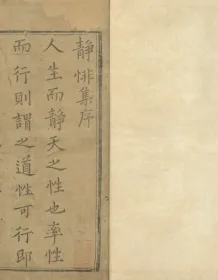 静悱集序
人生而靜天之性也率性
而行則謂之道性可行即